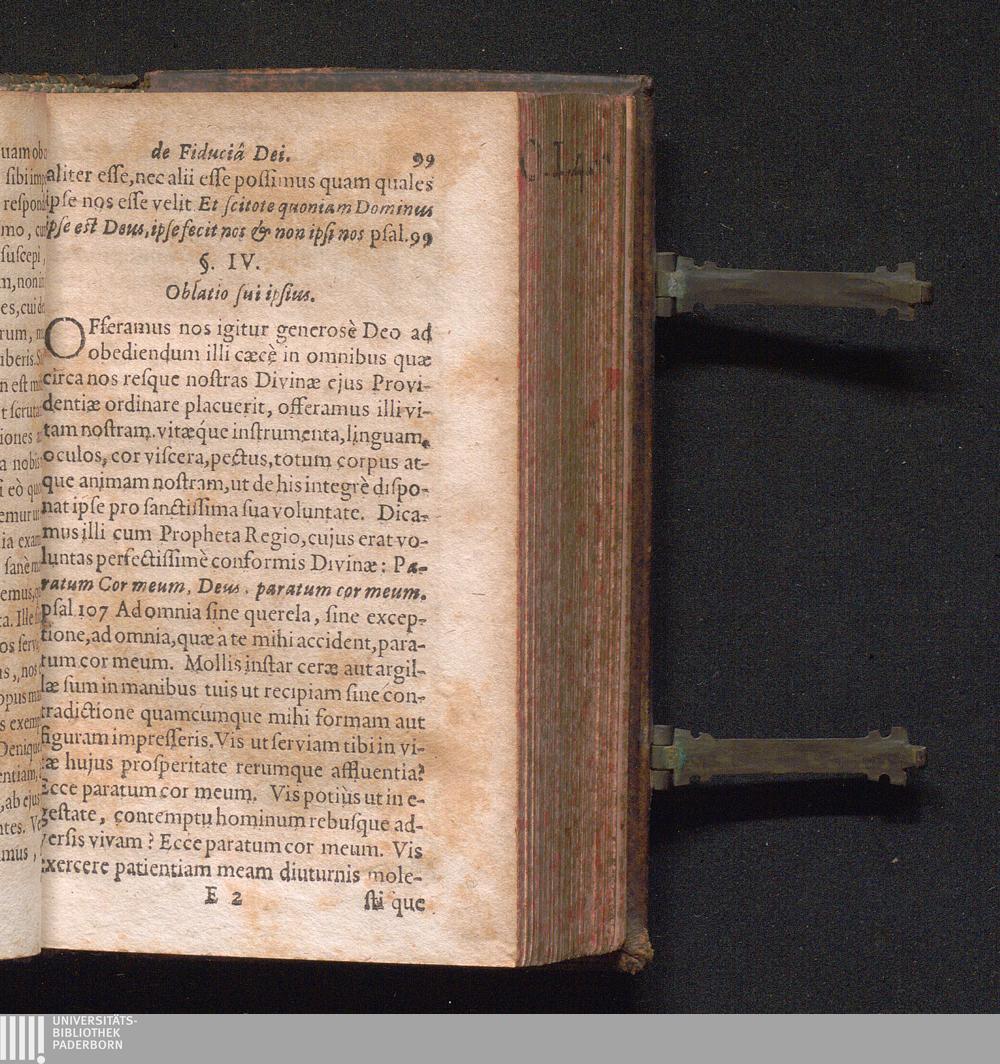 de Fiduciâ Dei. 99
aliter eſſe, nec alii eſſe poſſimus quam quales
ipſe nos eſſe velit Et ſcitote quoniam Dominus
ipſe eſt Deus, ipſe fecit nos & non ipſi nos pſal. 99
§. IV.
Oblatio ſui ipſius.
OFferamus nos igitur generosè Deo ad
obediendum illi cæcè in omnibus quæ
circa nos reſque noſtras Divinæ ejus Provi-
dentiæ ordinare placuerit, offeramus illi vi-
tam noſtram. vitæq́ue inſtrumenta, linguam,
oculos, cor viſcera, pectus, totum corpus at-
que animam noſtram, ut de his integrè diſpo-
nat ipſe pro ſanctiſſima ſua voluntate. Dica-
mus illi cum Propheta Regio, cujus erat vo-
luntas perfectiſſimè conformis Divinæ: Pa-
ratum Cor meum, Deus, paratum cor meum.
pſal 107 Ad omnia ſine querela, ſine excep-
tione, ad omnia, quæ à te mihi accident, para-
tum cor meum. Mollis inſtar ceræ aut argil-
læ ſum in manibus tuis ut recipiam ſine con-
tradictione quamcumque mihi formam aut
figuram impreſſeris. Vis ut ſerviam tibi in vi-
tæ hujus proſperitate rerumque affluentia?
Ecce paratum cor meum. Vis potiùs ut in e-
geſtate, contemptu hominum rebuſque ad-
verſis vivam? Ecce paratum cor meum. Vis
exercere patientiam meam diuturnis mole-
E 2 ſti que
UNIVERSITÄTS-
BIBLIOTHEK
PADERBORN